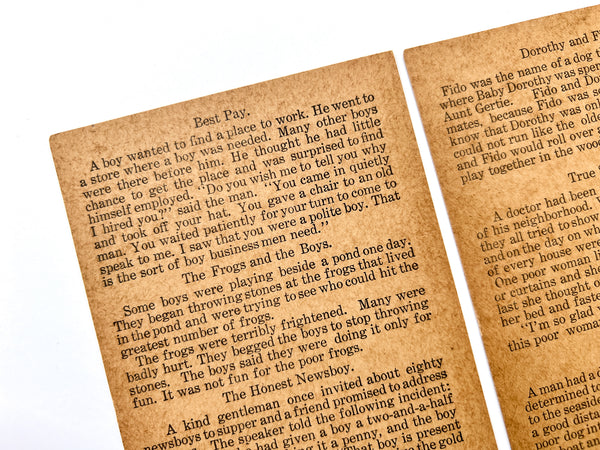 Best Pay.
A boy wanted to find a place to work. He went to
a store where a boy was needed. Many other boys
were there before him. He thought he had little
chance to get the place and was surprised to find
himself employed. "Do you wish me to tell you why
I hired you?" said the man. "You came in quietly
and took off your hat. You gave a chair to an old
man. You waited patiently for your turn to come to
speak to me. I saw that you were a polite boy. That
is the sort of boy business men need."
The Frogs and the Boys.
Some boys were playing beside a pond one day.
They began throwing stones at the frogs that lived
in the pond and were trying to see who could hit the
greatest number of frogs.
The frogs were terribly frightened. Many were
badly hurt. They begged the boys to stop throwing
stones. The boys said they were doing it only for
fun. It was not fun for the poor frogs.
The Honest Newsboy.
A kind gentleman once invited about eighty
newsboys to supper and a friend promised to address
The speaker told the following incident:
he had given a boy a two-and-a-half
ing it a penny, and the boy
That boy is present
to the gold
Dorothy and F
Fido was the name of a dog t
where Baby Dorothy was spen
Aunt Gertie. Fido and Do
mates, because Fido was so
know that Dorothy was onl
could not run like the olde
and Fido would roll over a
play together in the woo
True
A doctor had been
of his neighborhood.
they all tried to show
and on the day on wh
of every house were
One poor woman li
or curtains and she
last she thought o
her bed and faste
"I'm so glad
this poor woma
A man had a d
determined to
to the seaside
a good distan
poor dog int
boat and a